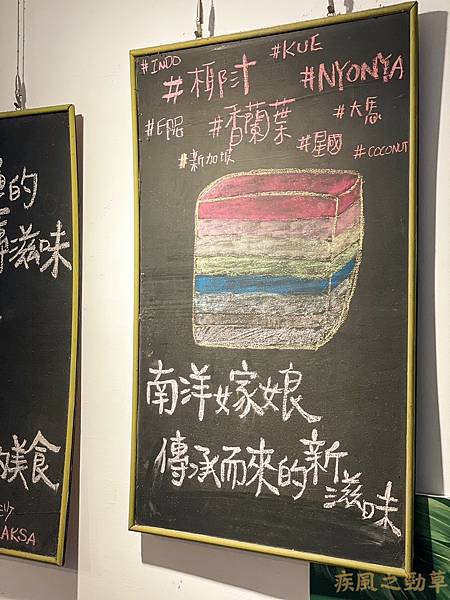 #INDO
#KUE
#椰汁
#NYONYA
#印尼
#香蘭葉
#大馬
#新加坡
#星國
#COCONUT
南洋嫁娘
傳承而來的新
滋味
的
滋味
美食
LAKSA
疾風之勁草